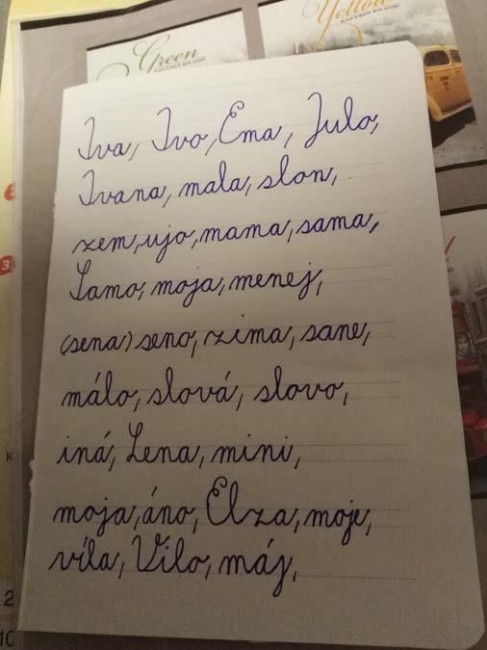 Green
Yellow
Iva, Ivo, Ema, Julo,
Ivana, mala, slon,
zem, ujo, mama, sama,
Samo, moja, menej,
(sena) seno, zima, sane,
málo, slová, slovo,
iná, Lena, mini,
moja, áno, Elza, moje,
víla, Vilo, máj,
3
2
10